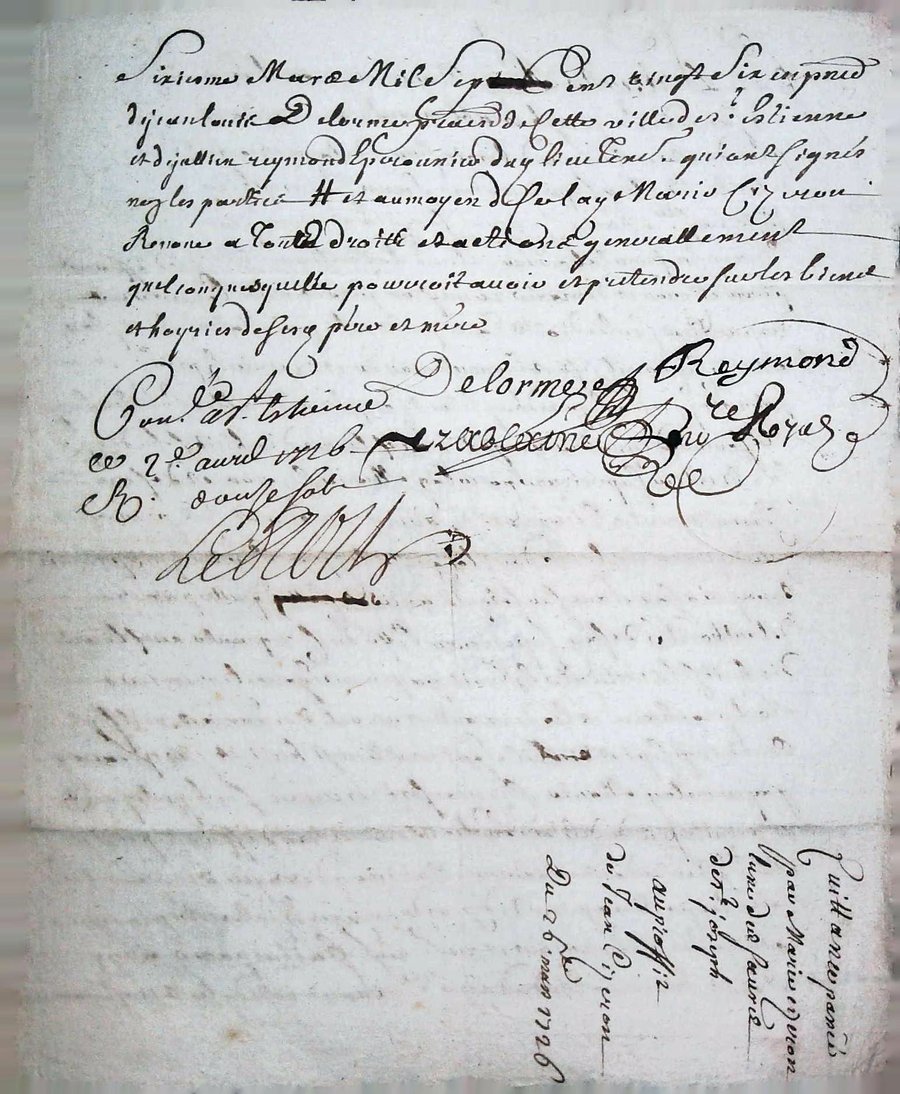 Sixiesme Mars Mil Sept Cent vingt Six en pnce
de jean louis Delorme pratd de Cette ville de st Estienne
et d'jattien reymond Eperonnier duy lieu Tens qui ont signés
non les parties # et au moyen de Cela y Marie Cizeron
Renonce a Toute droitte et actions generallement
quelconques quelle pourroit avoir et pretendre sur les biens
et hoyries de ses pere et mere
Delorme Reymond
Conlé a st Estienne
ce 2e avril 1726
R. douse sols
nore Royal
Quittance passée
par Marie Cizeron
de st joseph
au proffit
de Jean Cizeron
Du 26 mars 1726